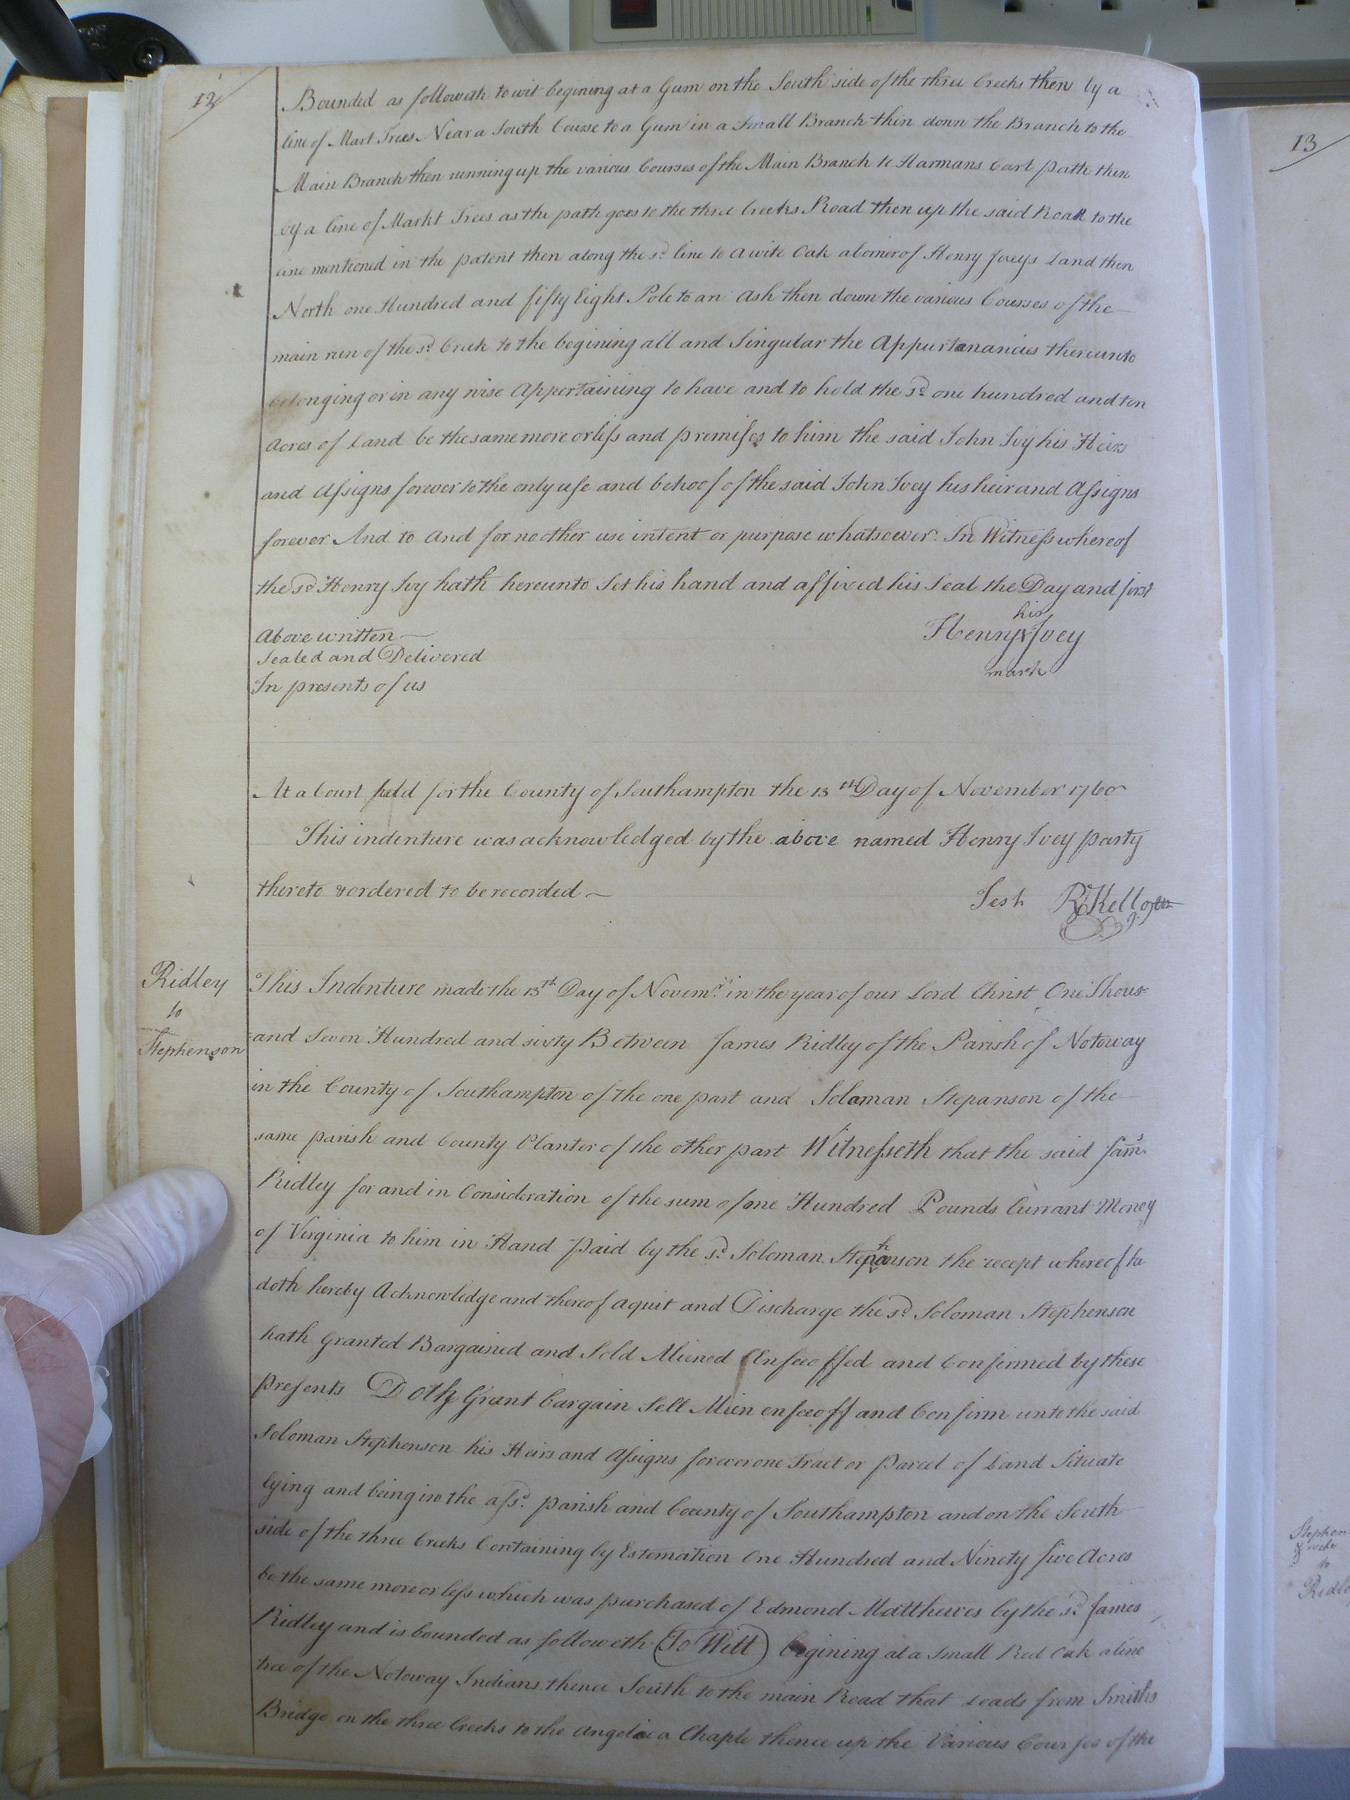 12
Bounded as followeth to wit begining at a Gum on the South side of the three Creeks then by a
line of Mart Trees Near a South Course to a Gum in a Small Branch then down the Branch to the
Main Branch then running up the various Courses of the Main Branch to Harmans Cart path then
by a line of Markt Trees as the path goes to the three Creeks Road then up the said Road to the
line mentioned in the patent then along the sd. line to a wite Oak a Corner of Henry Iveys Land then
North one Hundred and fifty Eight Pole to an Ash then down the various Courses of the
main run of the sd. Creek to the begining all and Singular the Appurtanances thereunto
belonging or in any wise Appertaining to have and to hold the sd. one hundred and ten
Acres of Land be the same more or less and premises to him the said John Ivy his Heirs
and Assigns forever to the only use and behoof of the said John Ivey his heir and Assigns
forever And to and for no other use intent or purpose whatsoever. In Witness whereof
the sd. Henry Ivy hath hereunto Set his hand and affixed his Seal the Day and first
Above written
his
Henry X Ivey
mark
Sealed and Delivered
In presents of us
At a Court held for the County of Southampton the 13th Day of November 1760
This indenture was acknowledged by the above named Henry Ivey party
thereto & ordered to be recorded
Test R. Kello
Ridley
to
Stephenson
This Indenture made the 13th Day of Novemr. in the year of our Lord Christ One Thous
and Seven Hundred and sixty Between James Ridley of the Parish of Notoway
in the County of Southampton of the one part and Soloman Stepanson of the
same parish and County Planter of the other part Witnesseth that the said Jams.
Ridley for and in Consideration of the sum of one Hundred Pounds Currant Money
of Virginia to him in Hand Paid by the sd. Soloman Stephenson the recept whereof he
doth hereby Acknowledge and thereof aquit and Discharge the sd. Soloman Stephenson
hath Granted Bargained and Sold Aliened Enfeoffed and Confirmed by these
presents Doth Grant bargain Sell Alien enfeoff and Confirm unto the said
Soloman Stephenson his Heirs and Assigns forever one Tract or parcel of Land Situate
lying and being in the afsd. parish and County of Southampton and on the South
side of the three Creeks Containing by Estomation One Hundred and Ninety five Acres
be the same more or less which was purchased of Edmond Matthews by the sd. James
Ridley and is bounded as followeth (To Witt) begining at a Small Red Oak a line
tree of the Notoway Indians thence South to the main Road that Leads from Smiths
Bridge on the three Creeks to the Angelica Chaple thence up the Various Courses of the
13
Stephen
& wife
to
Ridl